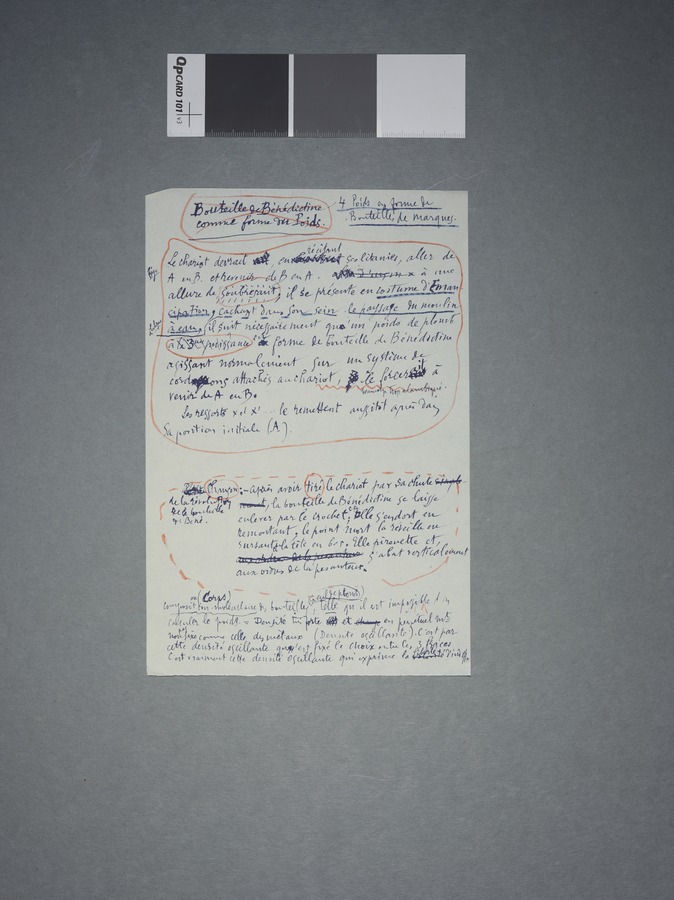 QPCARD 101 v3
Bouteille de Bénédictine
comme forme du Poids.
4 Poids en forme de
Bouteilles de marques.
récitant
Le chariot devrait en ses litanies, aller de
A en B. et revenir de B en A. à une
allure de soubresaut; il se présente en costume d'Éman
cipation, cachant dans son sein le paysage du moulin
à eau, il suit nécessairement que un poids de plomb
à la 3me puissance forme de bouteille de Bénédictine
agissant normalement sur un système de
cordons attachés au chariot, le force à
venir de A en B.
Les ressorts x et x' ... le remettent aussitôt après dans
sa position initiale (A).
Chanson: - après avoir tiré le chariot par sa chute
de la révolution
de la bouteille
de Béné.
la bouteille de Bénédictine se laisse
enlever par le crochet, elle s'endort en
remontant, le point mort la réveille en
sursaut, la tête en bas. Elle pirouette et
abat verticalement
aux ordres de la pesanteur.
ou (Corps)
composition moléculaire des bouteilles, telle qu'il est impossible d'en
calculer le poids. = Densité très forte et en perpétuel mvt
non fixe comme celle des métaux (Densité oscillante). C'est par
cette densité oscillante qu'est fixé le choix entre les 3 Forces
C'est vraiment cette densité oscillante qui exprime la